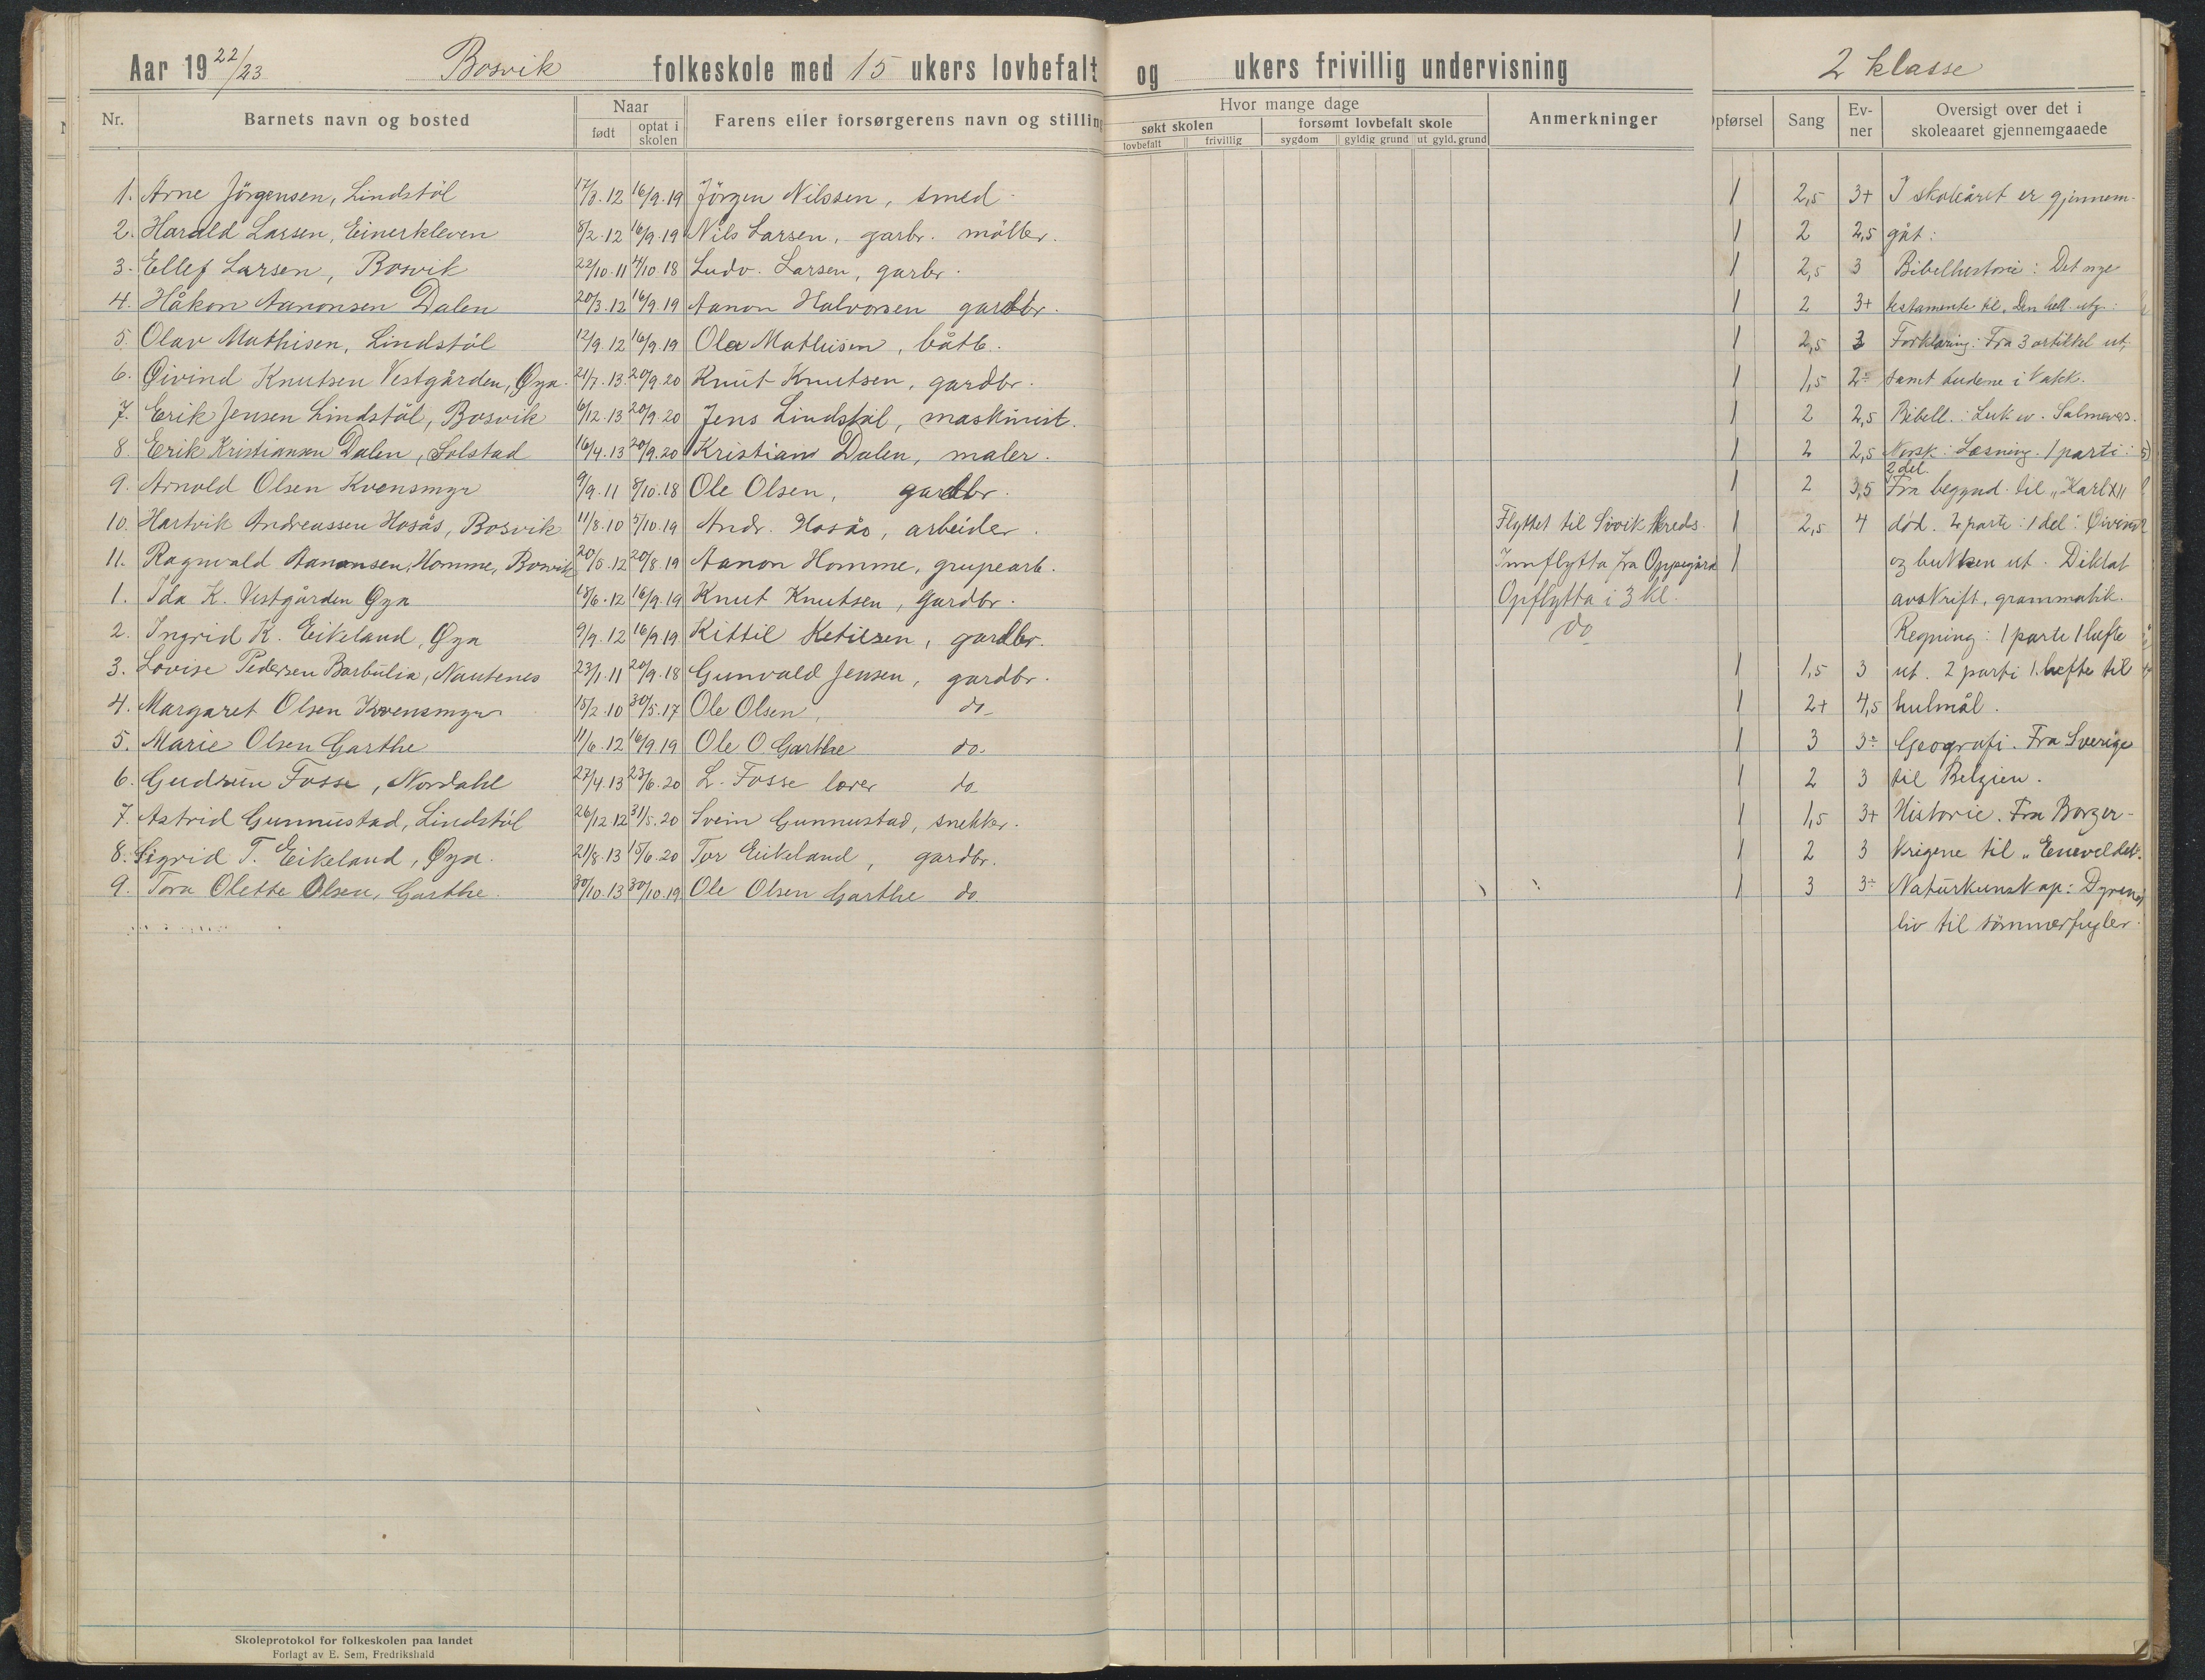 Aar 19 22/23 Bosvik folkeskole med 15 ukers lovbefalt og ukers frivillig undervisning 2 klasse
Nr. Barnets navn og bosted Naar født optat i skolen Farens eller forsørgerens navn og stilling Hvor mange dage søkt skolen lovbefalt frivillig forsømt lovbefalt skole sygdom gyldig grund ut gyld. grund Anmerkninger pførsel Sang Ev-ner Oversigt over det i skoleaaret gjennemgaaede
1. Arne Jörgensen, Lindstöl 17/8.12 16/9.19 Jörgen Nilssen, smed 1 2,5 3+ I skoleåret er gjennem-
2. Harald Larsen, Einerkleven 8/2.12 16/9.19 Nils Larsen, garbr. möller. 1 2 2,5 gåt:
3. Ellef Larsen, Bosvik 22/10.11 4/10.18 Ludv. Larsen, garbr. 1 2,5 3 Bibelhistorie: Det nye
4. Håkon Aanonsen Dalen 20/3.12 16/9.19 Aanon Halvorsen gardbr. 1 2 3+ testamente til "Den hell. utg.:
5. Olav Mathisen, Lindstöl 12/9.12 16/9.19 Ola Mathisen, båtb. 1 2,5 3 Forklaring: Fra 3 artikkel ut,
6. Øivind Knutsen Vestgården, Øya. 21/7.13. 20/9.20 Knut Knutsen, gardbr. 1 1,5 2÷ samt budene i kakk.
7. Erik Jensen Lindstöl, Bosvik 6/12.13 20/9.20 Jens Lindstöl, maskinist. 1 2 2,5 Bibell.: Luk ev. Salmevers.
8. Erik Kristiansen Dalen, Solstad 16/4.13 20/9.20 Kristian Dalen, maler. 1 2 2,5 Norsk: Læsning. 1 parti:
9. Arnold Olsen Kvensmyr 9/9.11 8/10.18 Ole Olsen, gardbr. 1 2 3,5 2 del. Fra begynd. til "Karl XII
10. Hartvik Andreassen Hosås, Bosvik 11/8.10 5/10.19 Andr. Hosås, arbeider. Flyttet til Sövik kreds. 1 2,5 4 död. 2 parti: 1 del: Øivind
11. Ragnvald Aanonsen, Homme, Bosvik 20/5.12 20/8.19 Aanon Homme, grupearb. Innflytta fra Oppegård 1 og bukken ut. Diktat
1. Ida K. Vestgården Øya 18/6.12 16/9.19 Knut Knutsen, gardbr. Opflytta i 3 kl. avskrift, grammatik.
2. Ingrid K. Eikeland, Øya 9/9.12 16/9.19 Kittil Ketilsen, gardbr. do Regning: 1 parti 1 hefte
3. Lovise Pedersen Barbulia, Nautenes 23/1.11 20/9.18 Gunvald Jensen, gardbr. 1 1,5 3 ut. 2 parti 1. hefte til
4. Margaret Olsen Kvensmyr 15/2.10 30/5.17 Ole Olsen, do 1 2+ 4,5 hulmål.
5. Marie Olsen Garthe 11/6.12 16/9.19 Ole O. Garthe do. 1 3 3÷ Geografi. Fra Sverige
6. Gudrun Fosse, Nordahl 27/4.13 23/6.20 L. Fosse lærer do 1 2 3 til Belgien.
7. Astrid Gunnustad, Lindstöl 26/12 12 31/5.20 Svein Gunnustad, snekker. 1 1,5 3+ Historie. Fra Borger-
8. Sigrid T. Eikeland, Øya. 21/8.13 15/6.20 Tor Eikeland, gardbr. 1 2 3 krigene til "Eneveldet".
9. Tora Olette Olsen, Garthe. 30/10.13 30/10.19 Ole Olsen Garthe do. 1 3 3÷ Naturkunskap: Dyrenes
liv til sommerfugler.
Skoleprotokol for folkeskolen paa landet
Forlagt av E. Sem, Fredrikshald